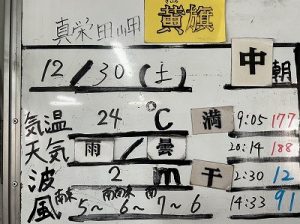 真栄田岬 黄旗
12/30(土) 中 朝
気温 24℃ 満 9:05 177
天気 雨/曇 20:14 188
波 2m 干 2:30 12
風 南東 南南東 南 14:33 91
5~6~7~6